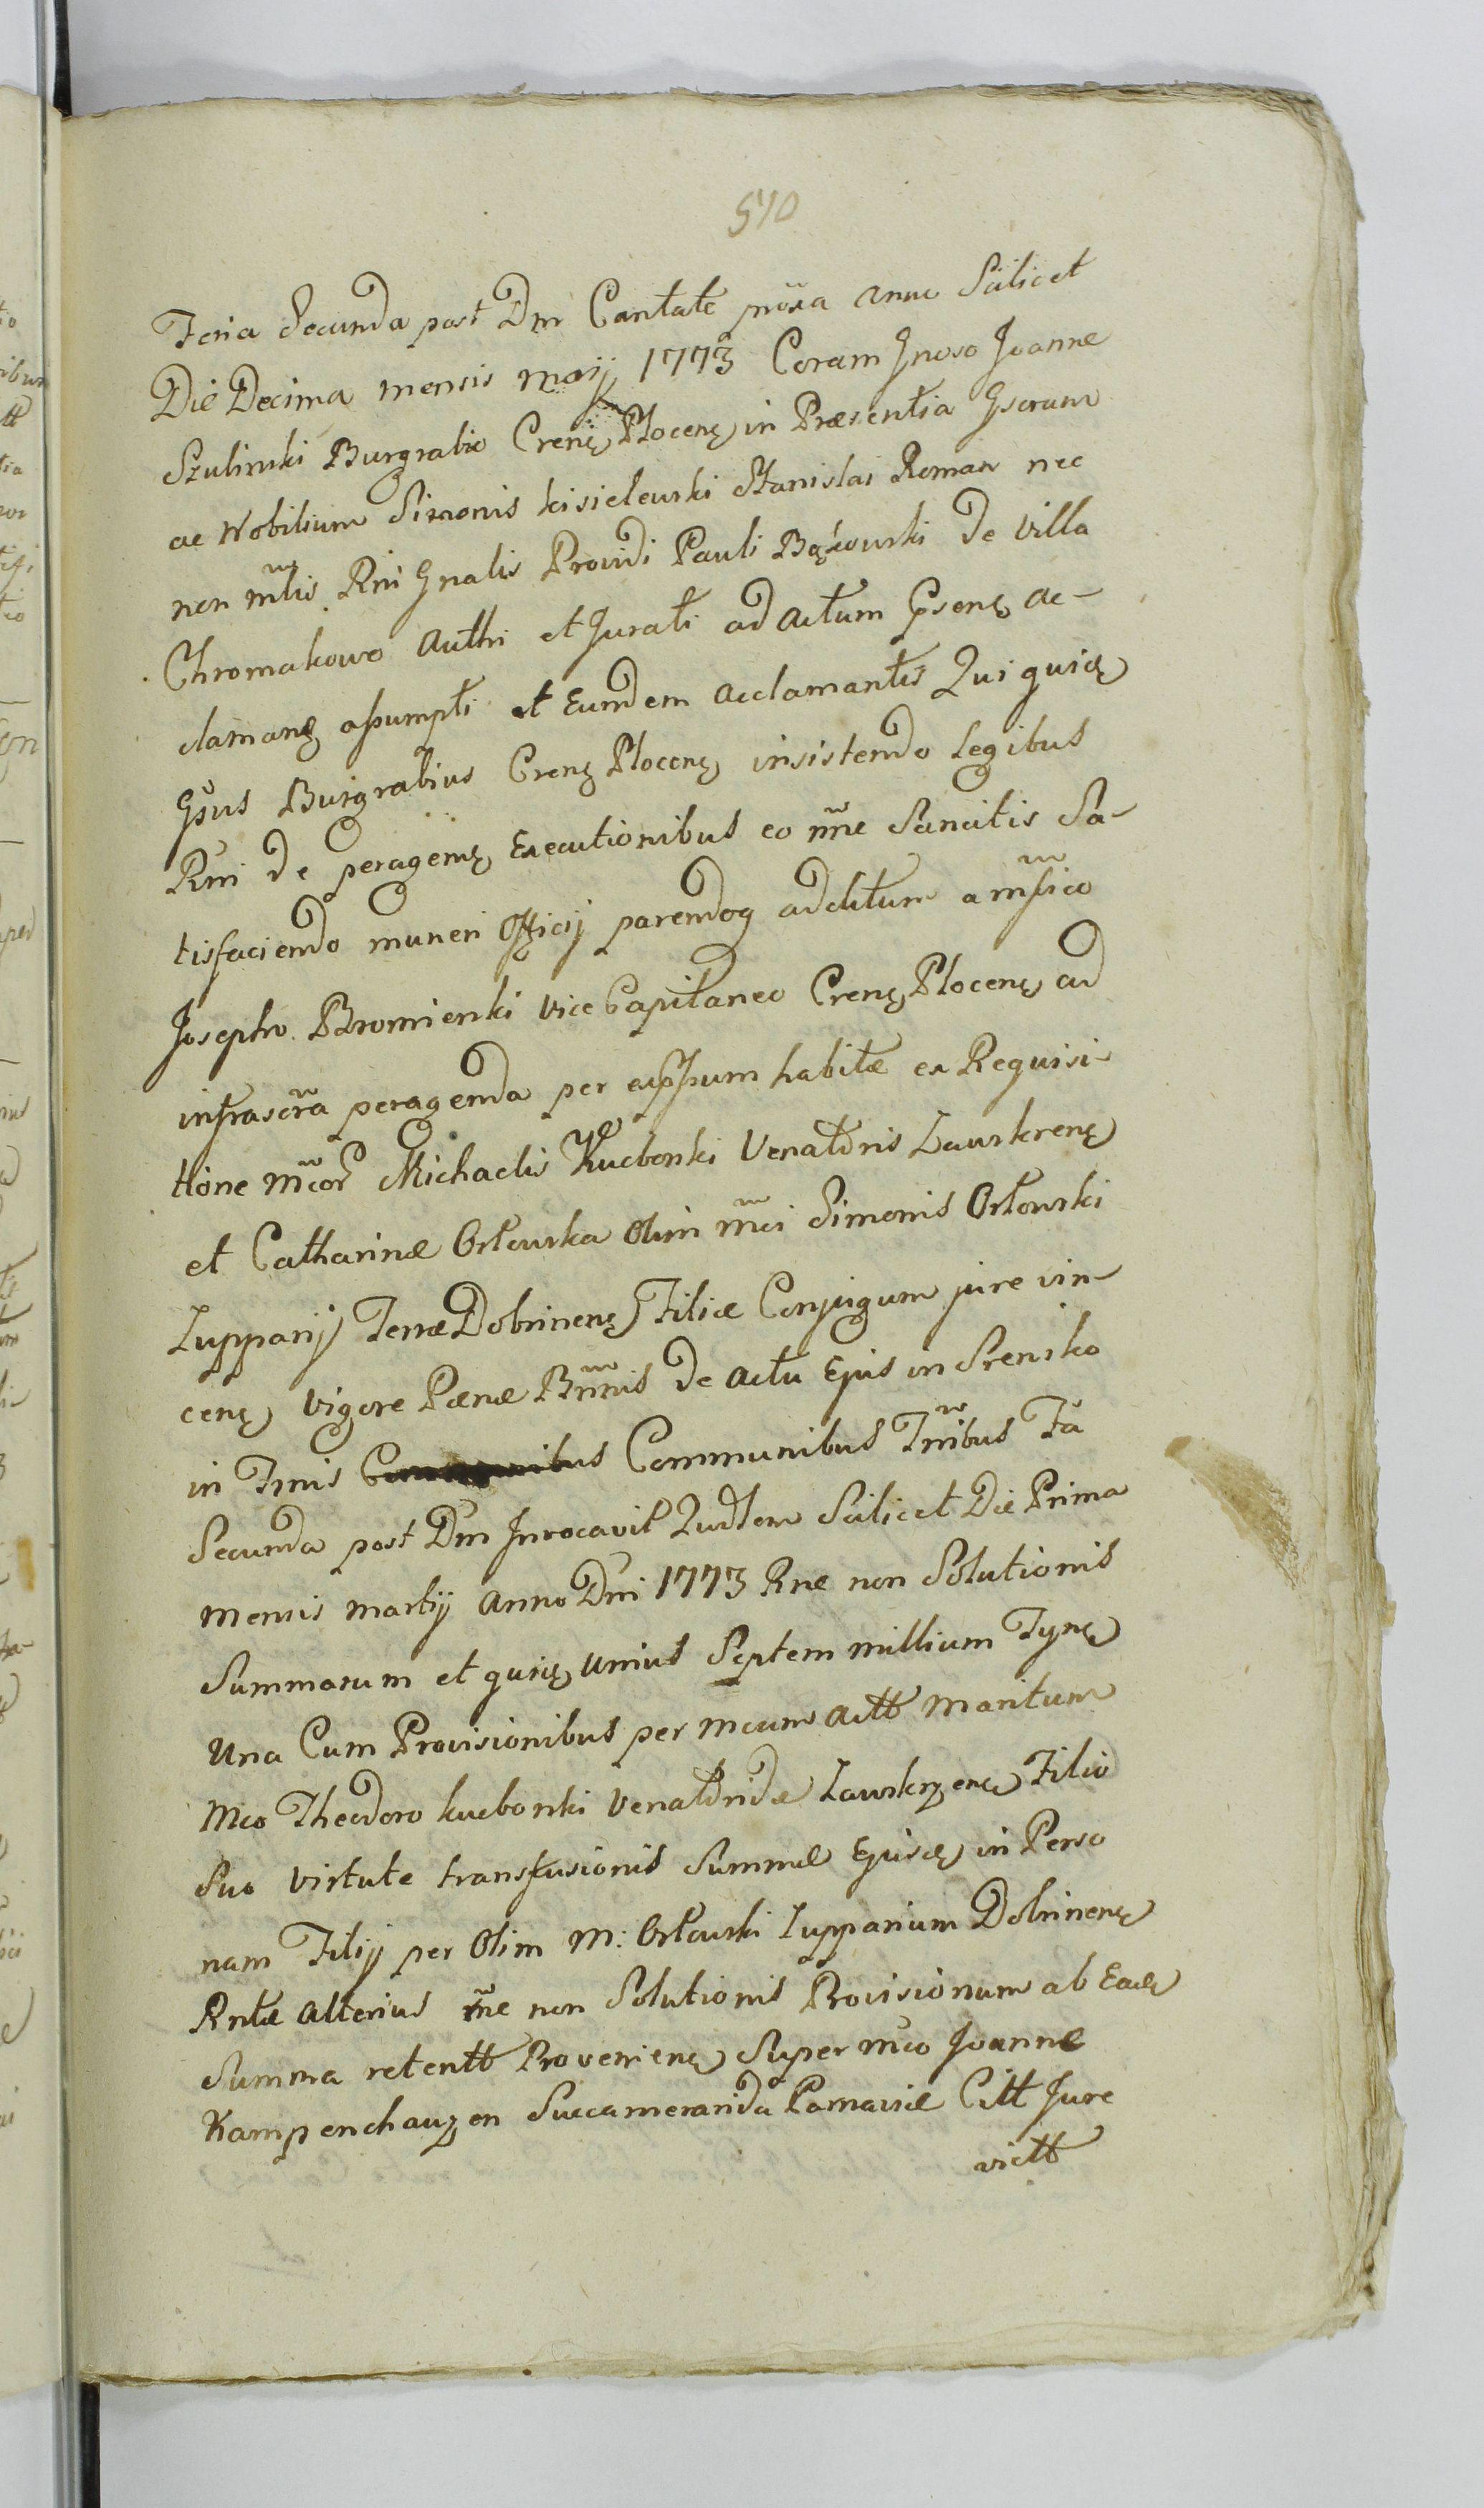 510
Feria Secunda post Dm Cantate pñoxa Anno Scilicet
Die Decima mensis maij 1773 Coram Gnoso Joanne
Szulinski Burgrabio Crenę Plocenę in Præsentia Gsorum
ac Nobilium Simonis kisielewski Stanislai Roman nec
non mlis Rni Gnalis Providi Pauli Bąkowski de Villa
Chromakowo Authi et Jurati ad Actum Psenę Ac-
clamanę assumpti et Eundem Acclamantis Qui quidę
Gsus Burgrabius Crenę Plocenę insistendo Legibus
Rni de peragenę Executionibus eo nñe Sancitis Sa-
tisfaciendo muneri Officij parendoq ad ditum a mfico
Josepho Bromierski Vice Capitaneo Crenę Plocenę ad
infrascra peragenda per eum habitæ ex Requisi-
tione Mcor Michaelis Kucborski Venatoris Zawskrenę
et Catharinæ Orłowska Olim mci Simonis Orłowski
Zupparij Terræ Dobrinenę Filiæ Conjugum jure vin-
cenę vigore Pænæ Bnnis de Actu Ejus in Srensko
in Tmis Communibus Tnibus Fa
Secunda post Dm Invocavit Qudlem Scilicet Die Prima
mensis martij Anno Dni 1773 Rne non Solutionis
Summarum et quidę unius Septem millium Tynę
Una Cum Provisionibus per mcum Actt maritum
Mco Theodoro kucborski Venatoridæ Zawskrzenę Filio
Suo virtute transfusionis Summæ Ejusdę in Perso
nam Filij per Olim M: Orłowski Zupparium Dobrinenę
Rntæ Alterius rñe non Solutionis Provisionum ab Eadę
Summa retentt Provenienę Super mco Joanne
Kampenchauzen Succameranida Parnaviæ Citt Jure
victt